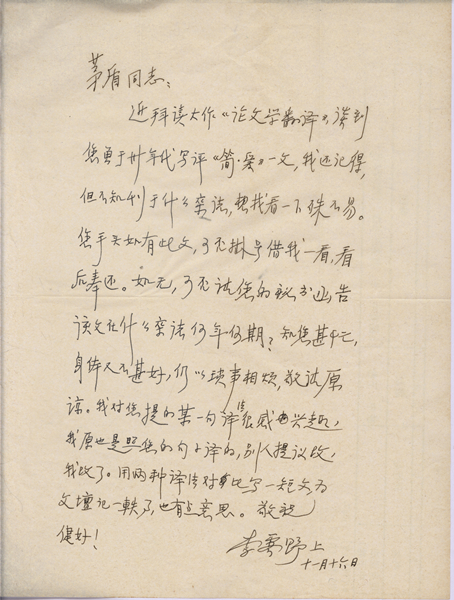 茅盾同志：
近拜读大作《论文学翻译》，谈到
您曾于卅年代写评《简·爱》一文，我还记得，
但不知刊于什么杂志，想找看一下殊不易。
您手头如有此文，可否挂号借我一看，看
后奉还。如无，可否试您的秘书函告
该文在什么杂志何年何期？知您甚忙，
身体又不甚好，仍以琐事相烦，敬请原
谅。我对您提的某一句译法很感兴趣，
我原也是照您的句子译的，别人提议改，
我改了。用两种译法对比写一短文为
文坛记一轶事，也有点意思。敬祝
健好！
李霁野上
十一月十六日